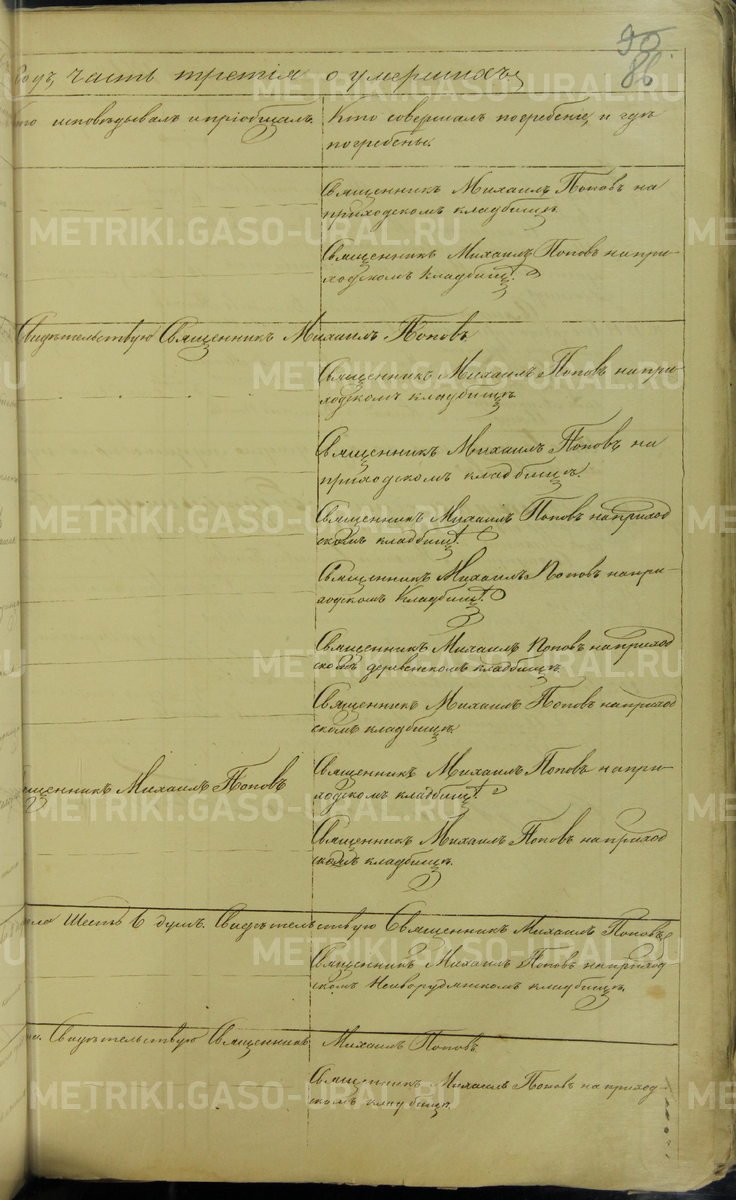 90
86
Годъ, часть третія о умершихъ.
исповѣдывалъ и пріобщалъ.
Кто совершалъ погребеніе, и гдѣ
погребены.
Священникъ Михаилъ Поповъ на
приходскомъ кладбищѣ.
METRIKI.GASO-URAL.RU
Священникъ Михаилъ Поповъ на при-
ходскомъ кладбищѣ.
Свидѣтельствую Священникъ Михаилъ Поповъ
Священникъ Михаилъ Поповъ на при-
ходскомъ кладбищѣ.
METRIKI.GASO-URAL.RU
Священникъ Михаилъ Поповъ на
приходскомъ кладбищѣ.
Священникъ Михаилъ Поповъ на приход
скомъ кладбищѣ.
METRIKI.GASO-URAL.RU
Священникъ Михаилъ Поповъ на при-
ходскомъ кладбищѣ.
Священникъ Михаилъ Поповъ на приход
скомъ деревенскомъ кладбищѣ.
METRIKI.GASO-URAL.RU
Священникъ Михаилъ Поповъ на приход
скомъ кладбищѣ
щенникъ Михаилъ Поповъ
Священникъ Михаилъ Поповъ на при-
ходскомъ кладбищѣ.
METRIKI.GASO-URAL.RU
Священникъ Михаилъ Поповъ на приход
скомъ кладбищѣ.
пола Шесть 6 душъ. Свидѣтельствую Священникъ Михаилъ Поповъ
METRIKI.GASO-URAL.RU
Священникъ Михаилъ Поповъ на приход
скомъ кладбищѣ.
Свидѣтельствую Священникъ Михаилъ Поповъ
METRIKI.GASO-URAL.RU
Священникъ Михаилъ Поповъ на приход-
скомъ кладбищѣ.